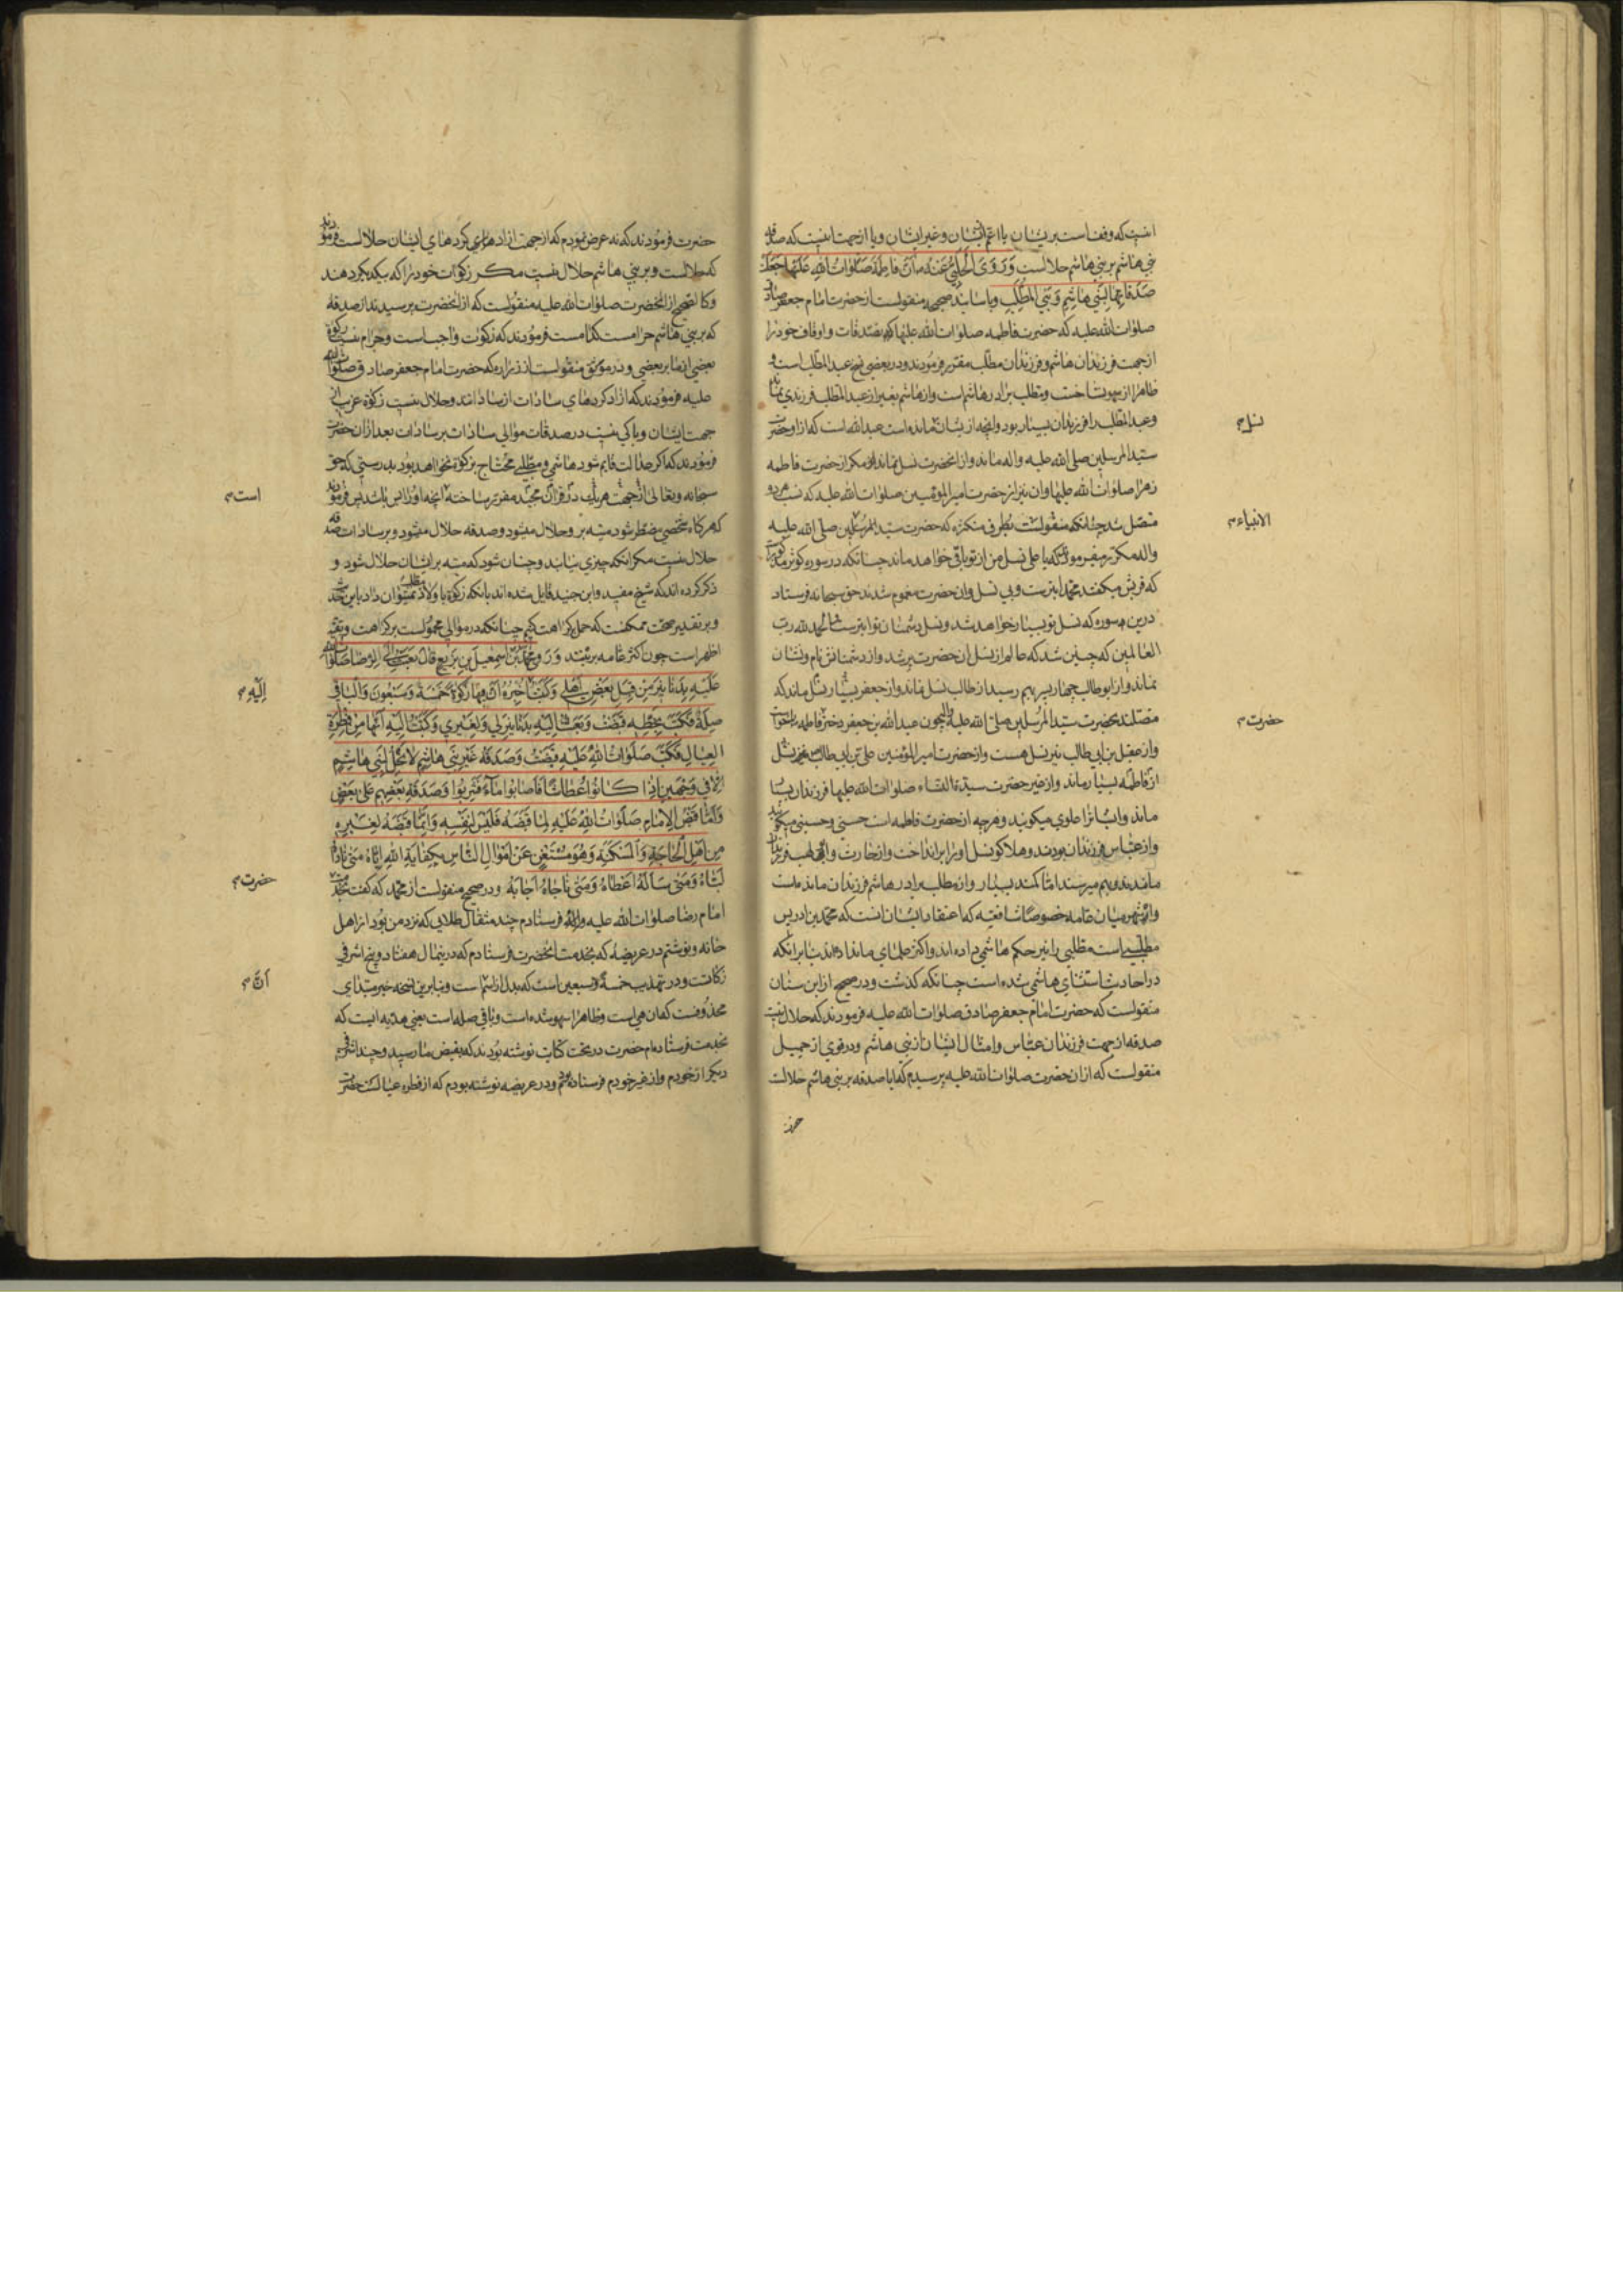 انیست که وقفست بریشان یا اعم ایشان و غیر ایشان و یا از جهت اینست که صدقه
بنی هاشم بر بنی هاشم حلالست وَرَوَی الحَلَبیُّ عَنهُ أنَّ فاطِمَةَ صَلَواتُ اللهِ عَلَیها جَعَلَت
صَدَقاتِها لِبَنی هاشِمٍ وَ بَنی المُطَّلِبِ و باسانید صحیحه منقولست از حضرت امام جعفر صادق
صلوات الله علیه که حضرت فاطمه صلوات الله علیها که بصدقات و اوقاف خود را
از جهت فرزندان هاشم و فرزندان مطلب مقرر فرمودند و در بعضی نسخ عبد المطلب است و
ظاهرا از سهو نساخت و مطلب برادر هاشم است و از هاشم بغیر از عبد المطلب فرزندی نماند
و عبد المطلب را فرزندان بسیار بود و انچه از یشان مانده است عبد الله است که از او حضرت
سید المرسلین صلی الله علیه و اله ماند و از انحضرت نسل نماند مکر از حضرت فاطمه
زهرا صلوات الله علیها و ان نیز از حضرت امیر المؤمنین صلوات الله علیه که نسب هر دو
متصل شد چنانکه منقولست بطرق متکثره که حضرت سید المرسلین صلی الله علیه
و اله مکرر میفرمودند که یا علی نسل من از تو باقی خواهد ماند چنانکه در سوره کوثر
که قریش میکفتند محمد ابترست و بی نسل و ان حضرت مغموم شدند حق سبحانه فرستاد
درین سوره که نسل تو بسیار خواهد شد و نسل دشمنان تو ابترست الحمد لله رب
العالمین که چنین شد که عالم از نسل ان حضرت پر شد و از دشمنانش نام و نشان
نماند و از ابو طالب چهار پسر بهم رسید از طالب نسل نماند و از جعفر بسیار نسل ماند که
متصلند بحضرت سید المرسلین صلی الله علیه واله چون عبد الله بن جعفر دختر فاطمه را خواست
و از عقیل بن ابی طالب نیز نسل هست و از حضرت امیر المؤمنین علی بن ابی طالب نسل
از فاطمه بسیار ماند و از غیر حضرت سیدة النساء صلوات الله علیها فرزندان بسیار
ماند و ایشانرا علوی میکویند و هر چه از حضرت فاطمه است حسنی و حسینی میکویند
و از عباس فرزندان بودند و هلاکو نسل او را برانداخت و از حارث و ابی لهب فرزندان
ماندند و بهم میرسند اما کمند بسیار و از مطلب برادر هاشم فرزندان مانده است
و مشهور میان عامه خصوصا شافعیه که اعتقاد ایشان انست که محمد بن ادریس
مطلبی است مطلبی را نیز حکم هاشمی داده اند و اکثر علمای ما نداده اند بنا بر انکه
در احادیث استثنای هاشمی شده است چنانکه کذشت و در صحیح از ابن سنان
منقولست که حضرت امام جعفر صادق صلوات الله علیه فرمودند که حلال نیست
صدقه از جهت فرزندان عباس و امثال ایشان از بنی هاشم و در قوی از جمیل
منقولست که از ان حضرت صلوات الله علیه پرسیدم که ایا صدقه بر بنی هاشم حلالست
نسل م
الانبیاء م
حضرت م
حضرت فرمودند که نه عرض نمودم که از جهت ازادهای کرده های ایشان حلالست فرمودند
که حلالست و بر بنی هاشم حلال نیست مکر زکوات خود را که بیکدیکر دهند
و کالصحیح از انحضرت صلوات الله علیه منقولست که از انحضرت پرسیدند از صدقه
که بر بنی هاشم حرامست کدامست فرمودند که زکوت واجبست و حرام نیست زکوة
بعضی از ما بر بعضی و در موثق منقولست از زراره که حضرت امام جعفر صادق صلوات الله
علیه فرمودند که ازاد کردهای سادات از ساداتند و حلال نیست زکوة عرب از
جهت ایشان و باکی نیست در صدقات موالی سادات بر سادات بعد از ان حضرت
فرمودند که اکر عدالت قایم شود هاشمی و مطلبی محتاج بزکوة نخواهد بود بدرستی که حق
سبحانه و تعالی از جهت هر یک در قران مجید مقرر ساخته انچه او را بس باشد پس فرمودند
که هرکاه شخصی مضطر شود میته بر و حلال میشود و صدقه حلال میشود و بر سادات صدقه
حلال نیست مکر انکه چیزی نیابند و چنان شود که میته بر ایشان حلال شود و
ذکر کرده اند که شیخ مفید و ابن جنید قایل شده اند بانکه زکوة باولاد مطلب نمیتوان داد باین حدیث
و بر تقدیر صحت ممکنست که حمل بر کراهت کنیم چنانکه در موالی محمولست بر کراهت و تقیه
اظهر است چون اکثر عامه برینند وَرَوی مُحمَّدُ بنُ اسمعیلَ بنِ بَزیعٍ قالَ بَعَثتُ اِلَی الرِّضا صَلَواتُ اللهِ
عَلَیهِ بِدَنانیرَ مِن قِبَلِ بَعضِ اَهلی وَ کَتَبتُ اُخبِرُهُ اَنَّ فیها زَکوةً خَمسَةً وَ سَبعونَ وَ الباقی
صِلَةٌ فَکَتَبَ بِخَطِّهِ قَبَضتُ وَ بَعَثتُ اِلَیهِ بِدَنانیرَ لی وَ لِغَیری وَ کَتَبتُ اِلَیهِ اَنَّها مِن فِطرَةِ
العِیالِ فَکَتَبَ صَلَواتُ اللهِ عَلَیهِ قَبَضتُ وَ صَدَقَةُ غَیرِ بَنی هاشِمٍ لاتَحِلُّ لِبَنی هاشِمٍ
اِلّا فی وَجهَینِ اِذا کانُوا عِطاشًا فَاَصابُوا ماءً فَشَرِبُوا وَ صَدَقَةِ بَعضِهِم عَلی بَعضٍ
وَ اَمّا قَبضُ الاِمامِ صَلَواتُ اللهِ عَلَیهِ لِما قَبَضَهُ فَلَیسَ لِنَفسِهِ وَ اِنَّما قَبَضَهُ لِغَیرِهِ
مِن اَهلِ الحاجَةِ وَ المَسکَنَةِ وَ هُوَ مُستَغنٍ عَن اَموالِ النّاسِ بِکِفایَةِ اللهِ اِیّاهُ مَتی ناداهُ
لَبّاهُ وَ مَتی سَاَلَهُ اَعطاهُ وَ مَتی ناجاهُ اَجابَهُ و در صحیح منقولست از محمد که کفت بخدمت
امام رضا صلوات الله علیه و اله فرستادم چند مثقال طلایی که نزد من بود از اهل
خانه و نوشتم در عریضه که بخدمت انحضرت فرستادم که درینمال هفتاد و پنج اشرفی
زکاتست و در تهذیب خمسة و سبعین است که بدل از اسم است و بنا برین نسخه خبر مبتدای
محذوفست که ان هی است و ظاهرا سهو شده است و باقی صله است یعنی هدیه ایست که
بخدمت فرستاده ام حضرت در تحت کتابت نوشته بودند که بقبض ما رسید و چند اشرفی
دیکر از خودم و از غیر خودم فرستاده بودم و در عریضه نوشته بودم که از فطره عیالست حضرت
است م
اِلَیهِ م
حضرت م
اَنَّ م